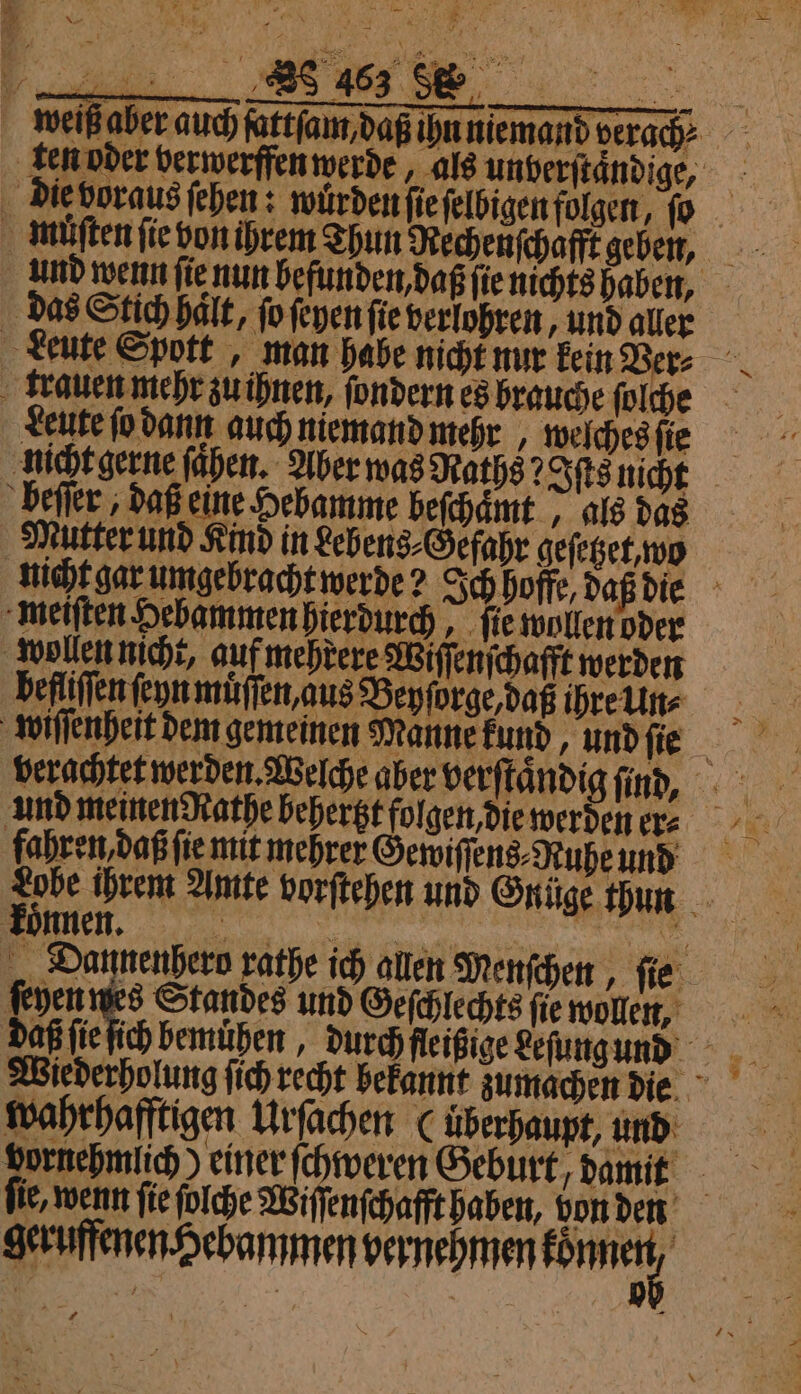 463
weiß aber auch ſattſam, daß ihn niemand verach⸗
ten oder verwerffen werde, als unverſtaͤndige,
die voraus ſehen: wuͤrden ſie ſelbigen folgen, ſo
muͤſten ſie von ihrem Thun Rechenſchafft geben,
und wenn ſie nun befunden, daß ſie nichts haben,
das Stich haͤlt, ſo ſeyen ſie verlohren, und aller
Leute Spott, man habe nicht nur kein Ver⸗
trauen mehr zu ihnen, ſondern es brauche ſolche
Leute ſo dann auch niemand mehr, welches ſie
nicht gerne ſaͤhen. Aber was Raths? Iſts nicht
beſſer, daß eine Hebamme beſchaͤmt, als das
Mutter und Kind in Lebens⸗Gefahr geſetzet, wo
nicht gar umgebracht werde? Ich hoffe, daß die
meiſten Hebammen hierdurch, ſie wollen oder
wollen nicht, auf mehrere Wiſſenſchafft werden
befliſſen ſeyn muͤſſen, aus Beyſorge, daß ihre Un⸗
wiſſenheit dem gemeinen Manne kund, und ſie
verachtet werden. Welche aber verſtaͤndig ſind,
und meinen Rathe behertzt folgen, die werden er⸗
fahren, daß ſie mit mehrer Gewiſſens⸗Ruhe und
Lobe ihrem Amte vorſtehen und Gnuͤge thun
koͤnnen.
Dannenhero rathe ich allen Menſchen, ſie
ſeyen wes Standes und Geſchlechts ſie wollen,
daß ſie ſich bemuͤhen, durch fleißige Leſung und
Wiederholung ſich recht bekannt zumachen die
wahrhafftigen Urſachen (uͤberhaupt, und
vornehmlich) einer ſchweren Geburt, damit
ſie, wenn ſie ſolche Wiſſenſchafft haben, von den
geruffenen Hebammen vernehmen koͤnnen,
ob